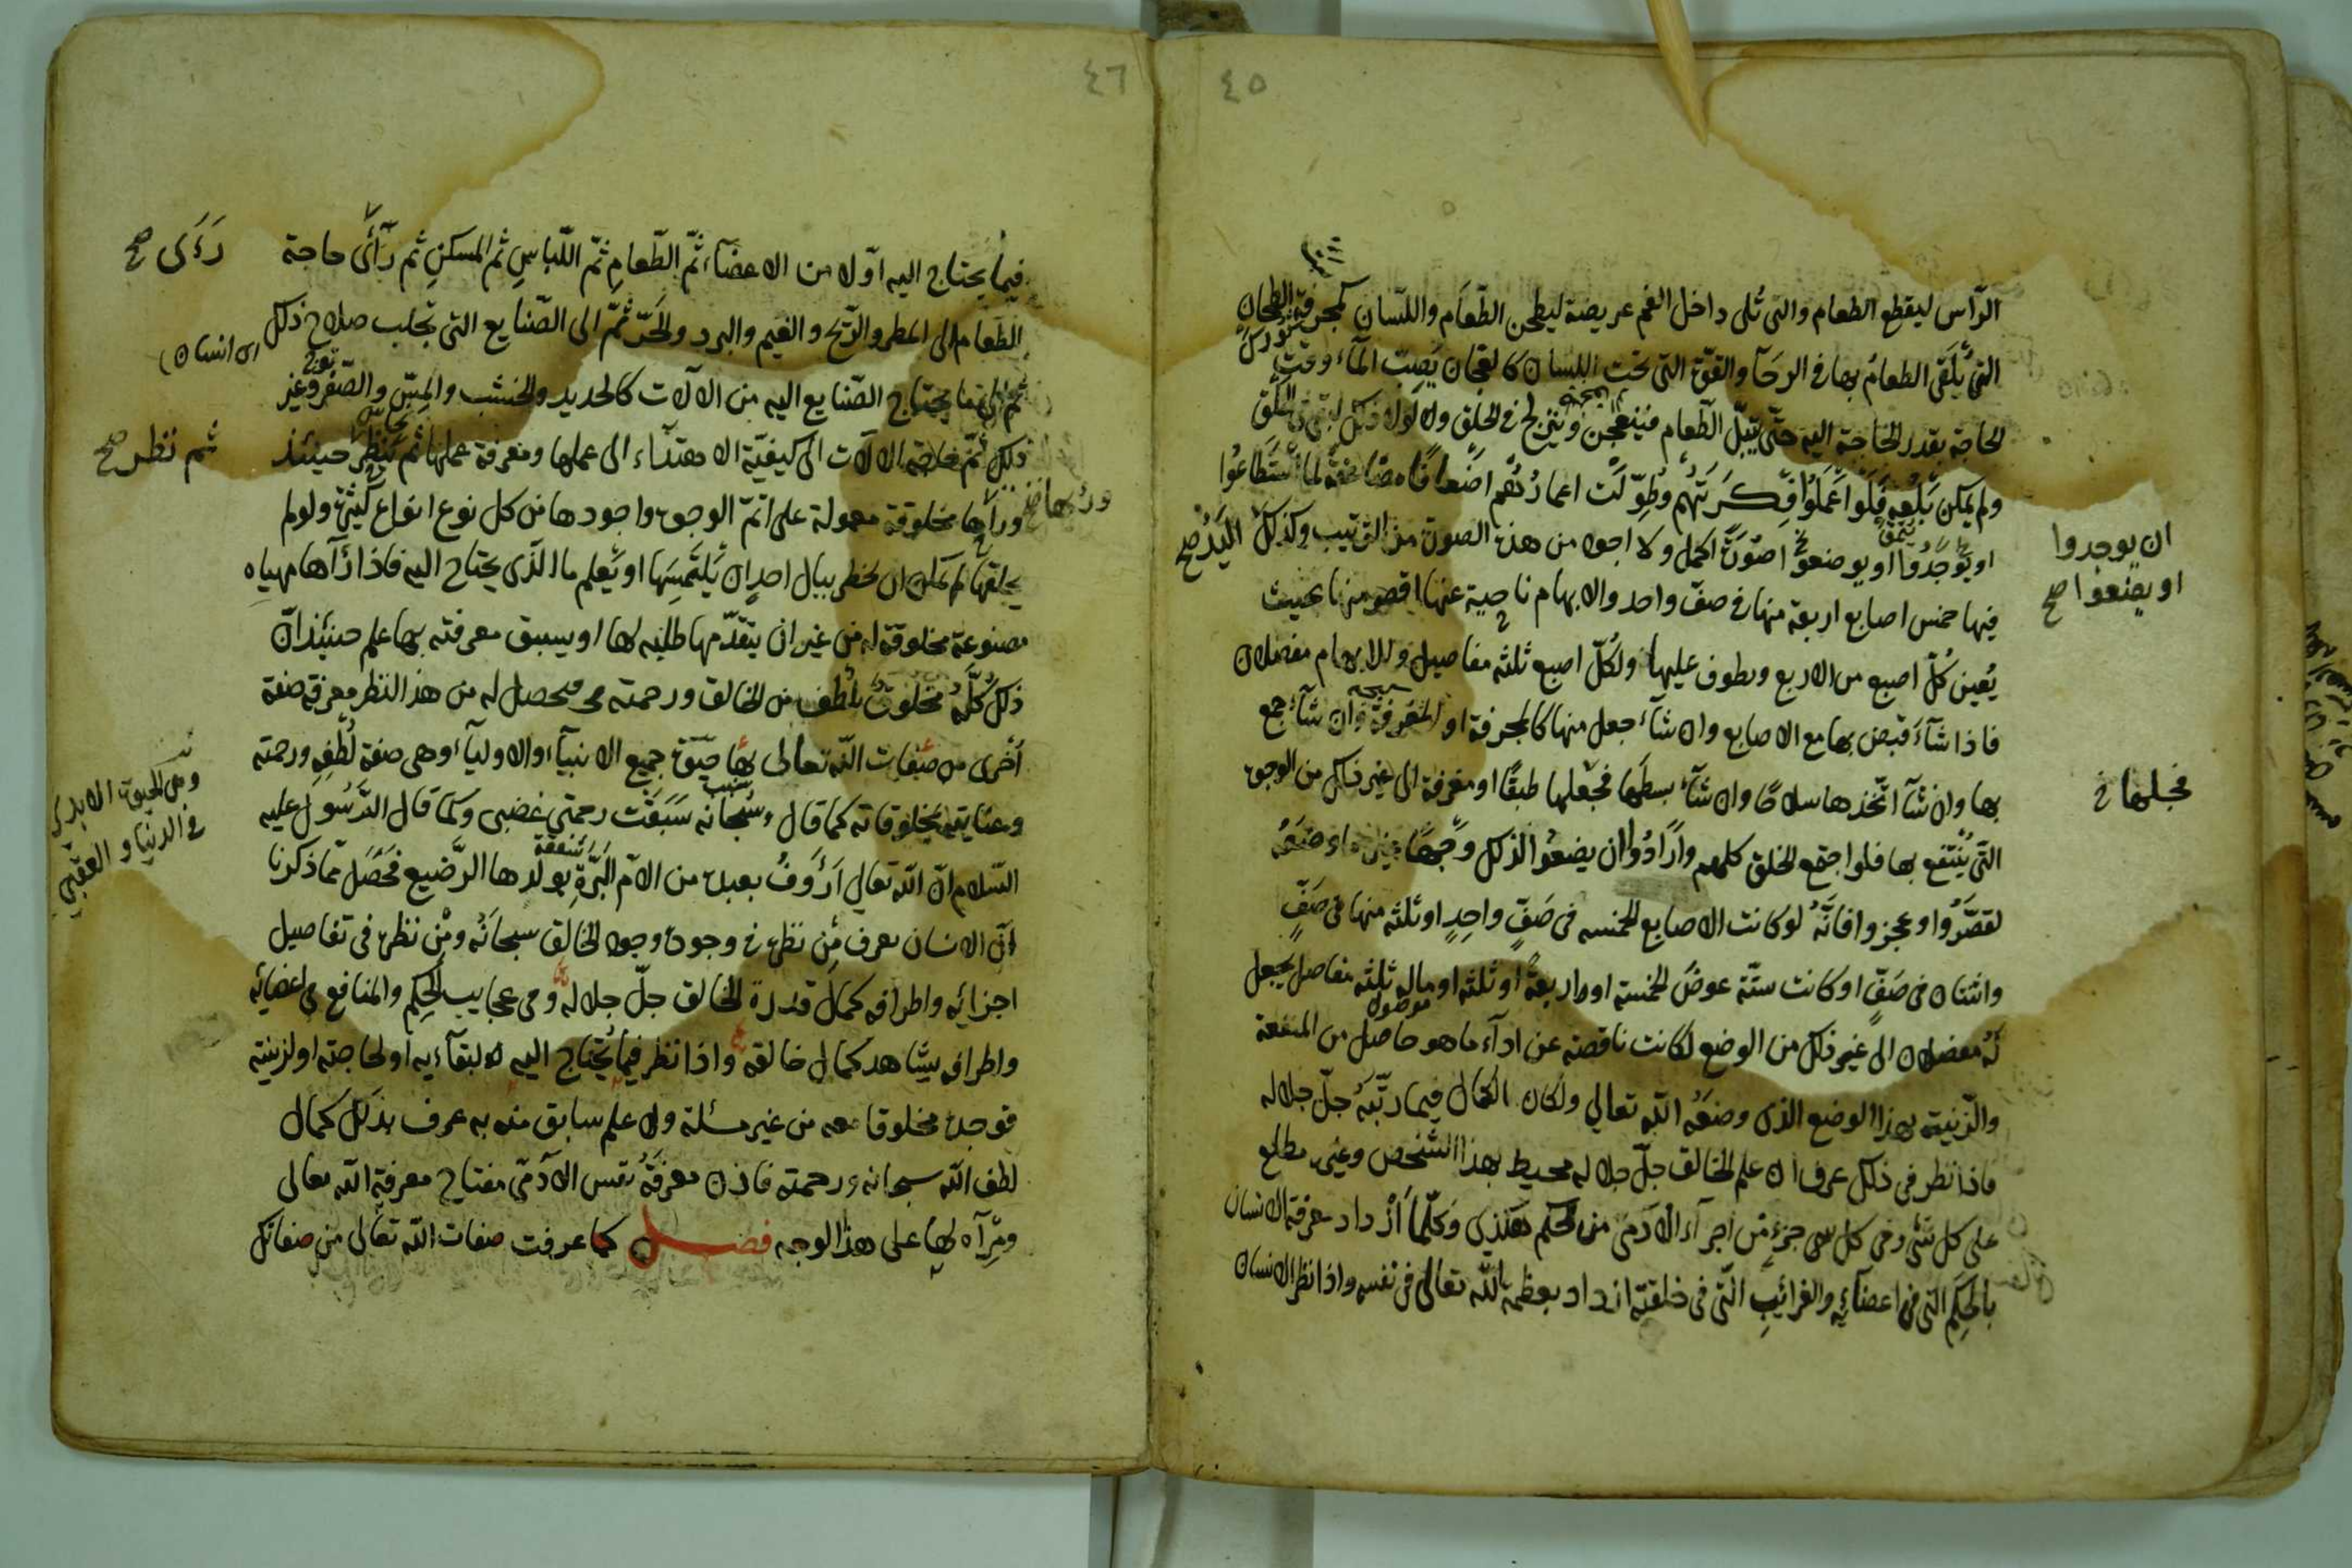 ٤٥
الرّاس ليقطع الطعام والتي تلى داخل الفم عريضة ليطحن الطّعام واللّسان كمجرفة الطحان
التي يُلقى الطعام بها في الرحآ والقوّة التي تحت اللسان كالعجان يصبّ المآء وقت
الحاجة بقدر الحاجة اليه حتّى يبلّ الطّعام فينعجن وينزلج في الحلق ولولا ذلك لبقى في الحلق
ولم يمكن بلعه فلو اعملوا فكرتهم وطوّلت اعمارهم اضعافا مضاعفة لما استطاعوا
او يوجدوا او يوضعوا صورة اكمل ولا اجود من هذه الصورة من الترتيب وكذلك اليد صح
ان يوجدوا
او يصنعوا صح
فيها خمس اصابع اربعة منها في صفّ واحد والابهام ناحية عنها اقصر منها بحيث
يُعين كلّ اصبع من الاربع ويطوف عليها ولكلّ اصبع ثلثة مفاصيل وللابهام مفصلان
فاذا شآء قبض بها مع الاصابع وان شآء جعل منها كالمجرفة او المغرفة وان شآء جمع
بها وان شآ اتّخذها سلاحًا وان شآء بسطها فجعلها طبقًا او مغرفة الى غير ذلك من الوجوه
فجعلها خ
التي يُنتفع بها فلو اجتمع الخلق كلهم وارادوا ان يضعوا لذلك وجهًا غير ما وضعه
لقصّروا وعجزوا فانّه لو كانت الاصابع الخمسه في صفّ واحدٍ او ثلثه منها في صفٍّ
واثنان في صفّ او كانت ستّة عوض الخمسة او اربعة او ثلثه او ماله ثلثه مفاصل يجعل
له مفصلان الى غير ذلك من الوضع لكانت ناقصة عن ادآء ما هو حاصل من المنفعة
والزّينة بهذا الوضع الذي وضعه الله تعالي ولكان الكمال فيما رتّبه جلّ جلاله
فاذا نظر في ذلك عرف ان علم الخالق جلّ جلاله محيط بهذا الشخص وغيره مطلع
على كل شئ وفي كل جزءٍ من اجزآء الآدمى من الحكم هكذى وكلّما ازداد معرفة الانسان
بالحِكَم التي في اعضآئه والغرائب الّتي في خلقته ازداد بعظمة الله تعالى في نفسه واذا نظر الانسان
٤٦
فيما يحتاج اليه اوّلا من الاعضآء ثمّ الطّعام ثمّ اللّباس ثم المسكن ثم رآئ حاجة
رَءَى صح
الطّعام الى المطر والرّيح والغيم والبرد والحَرّ ثمّ الى الصّنايع التي تجلب صلاح ذلك
اى انسان
ثمّ الى ما يحتاج الصّنايع اليه من الالات كالحديد والخشب والمسّ والصّفر وغير
ذلك ثمّ حاجة الالات الى كيفيّة الاهتدآء الى عملها ومعرفة عملها ثم ينظر حينئذ
ثم نظر صح
ورآها مخلوقة معمولة على اتمّ الوجوه واجودها من كل نوع انواع كثيرة ولو لم
يخلقها لم يمكن ان يخطر ببال احدٍ ان يلتمسها او يعلم ما الّذى يحتاج اليه فاذا رآها مهياه
مصنوعة مخلوقة له من غير ان يتقدّمها طلبه لها او يسبق معرفته بها علم حينئذ انّ
ذلك كلّه مخلوق بلطف من الخالق ورحمته فيحصل له من هذا النظر معرفة صفة
اُخرى من صفات الله تعالى بها حيوة جميع الانبيآء والاوليآء وهى صفة لُطفِه ورحمته
وهى الحيوة الابدى
في الدنيا والعقبى
وعنايته بمخلوقاته كما قال سُبحانه سبقت رحمتي غضبي وكما قال الرّسول عليه
السّلام انّ الله تعالي ارؤف بعبده من الامّ البرّة بولدها الرّضيع فحصل ممّا ذكرنا
انّ الانسان يعرف من نظره في وجوده وجود الخالق سبحانه ومن نظره في تفاصيل
اجزائه واطرافه كمال قدرة الخالق جلّ جلاله ومن عجايب الحِكَم والمنافع في اعضائه
واطرافه يشاهد كمال خالقه واذا نظر فيما يُحتاج اليه لبقآءيه او لحاجته او لزينته
فوجده مخلوقا معه من غير مسئلة ولا علم سابق منه به عرف بذلك كمال
لطف الله سبحانه ورحمته فاذن معرفة نفس الآدمّى مفتاح معرفة الله تعالى
ومرآه لها على هذا الوجه فصل كما عرفت صفات الله تعالى من صفاتك